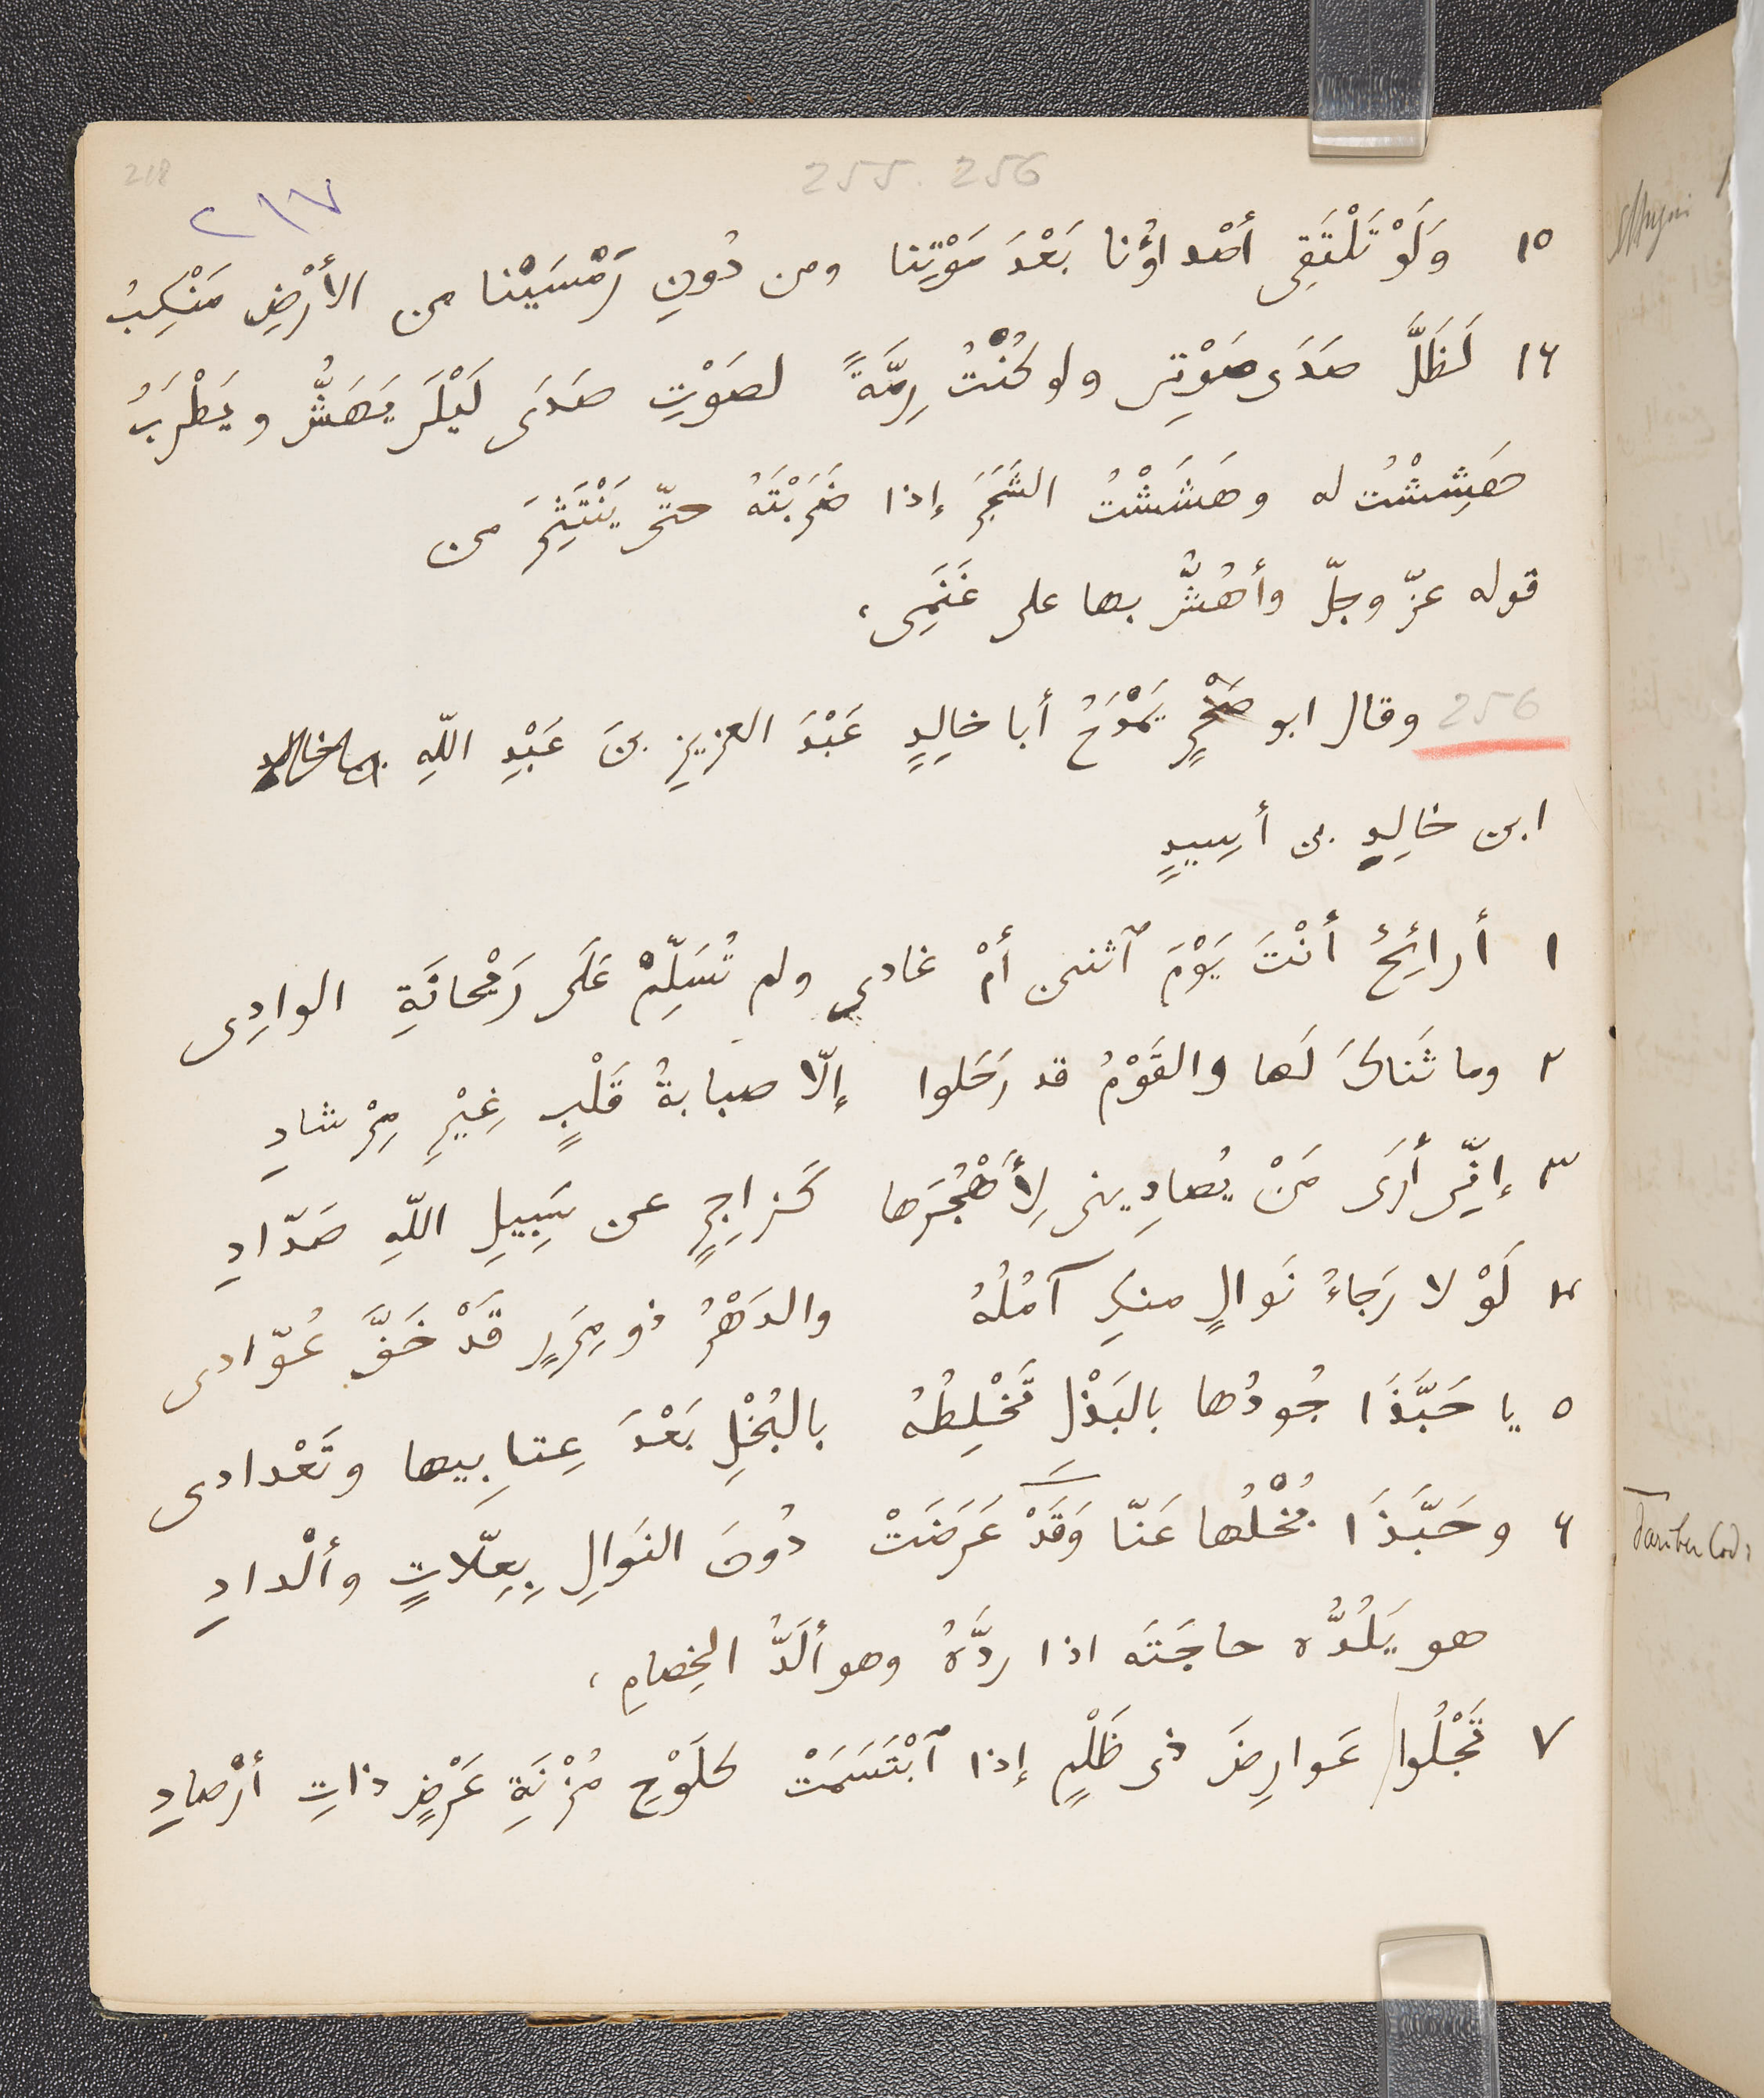 218
255. 256
٢١٧
١٥ وَلَوْ تَلْتَقِى أصْداؤُنا بَعْدَ مَوْتِنا ومن دُونِ رَمْسَيْنا من الأرْضِ مَنْكِبُ
١٦ لَظَلَّ صَدَى صَوْتِى ولو كُنْتُ رِمَّةً لصَوْتِ صَدَى لَيْلَى يَهَشُّ ويَطْرَبُ
هَشِشْتُ له وهَشَشْتُ الشَجَرَ إذا ضَرَبْتَهُ حتّى يَنْتَثِرَ من
قوله عزّ وجلّ وأهُشُّ بها على غَنَمِى،
256 وقال ابو صَخْرٍ يَمْدَحُ أبا خالِدٍ عَبْدَ العزيزِ بنَ عَبْدِ اللّهِ
ابن خالِدِ بن أسِيدٍ
١ أرائِحٌ أنْتَ يَوْمَ ٱثنىن أمْ غادى ولم تُسَلِّمْ عَلَى رَيْحانَةِ الوادِى
٢ وما ثَناكَ لَها والقَوْمُ قد رَحَلوا إلّا صبابةُ قَلْبٍ غِيْرِ مِرْشادِ
٣ إنِّى أرَى مَنْ يُصادِينى لِأَهْجُرَها كَزاجِرٍ عن سَبِيلِ اللّهِ صَدّادِ
٤ لَوْ لا رَجاءُ نَوالٍ منكِ آمُلُهُ والدَهْرُ ذو مِرَرٍ قَدْ خَفَّ عُوّادى
٥ يا حَبَّذَا جُودُها بالبَذْلِ تَخْلِطُهُ بالبُخْلِ بَعْدَ عِتابِيها وتَعْدادى
٦ وحَبَّذَا بُخْلُها عَنّا وَقَدْ عَرَضَتْ دُونَ النَوالِ بِعِلّاتٍ وألْدادِ
هو يَلُدُّه حاجَتَه اذا ردَّهُ وهو ألَدُّ الخِصامِ،
٧ تَجْلُوا عَوارِضَ ذى ظَلْمٍ إذا ٱبْتَسَمَتْ كلَوْحِ مُزْنَةِ عَرْضٍ ذاتِ أرْصادِ